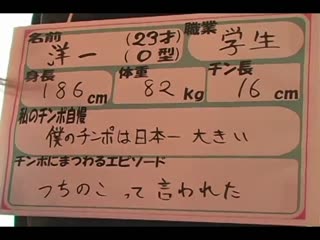 名前 洋一 (23才) (O型) 職業 学生
身長 186cm 体重 82Kg チン長 16cm
私のチンポ自慢
僕のチンポは日本一 大きい
チンポにまつわるエピソード
つちのこ って言われた